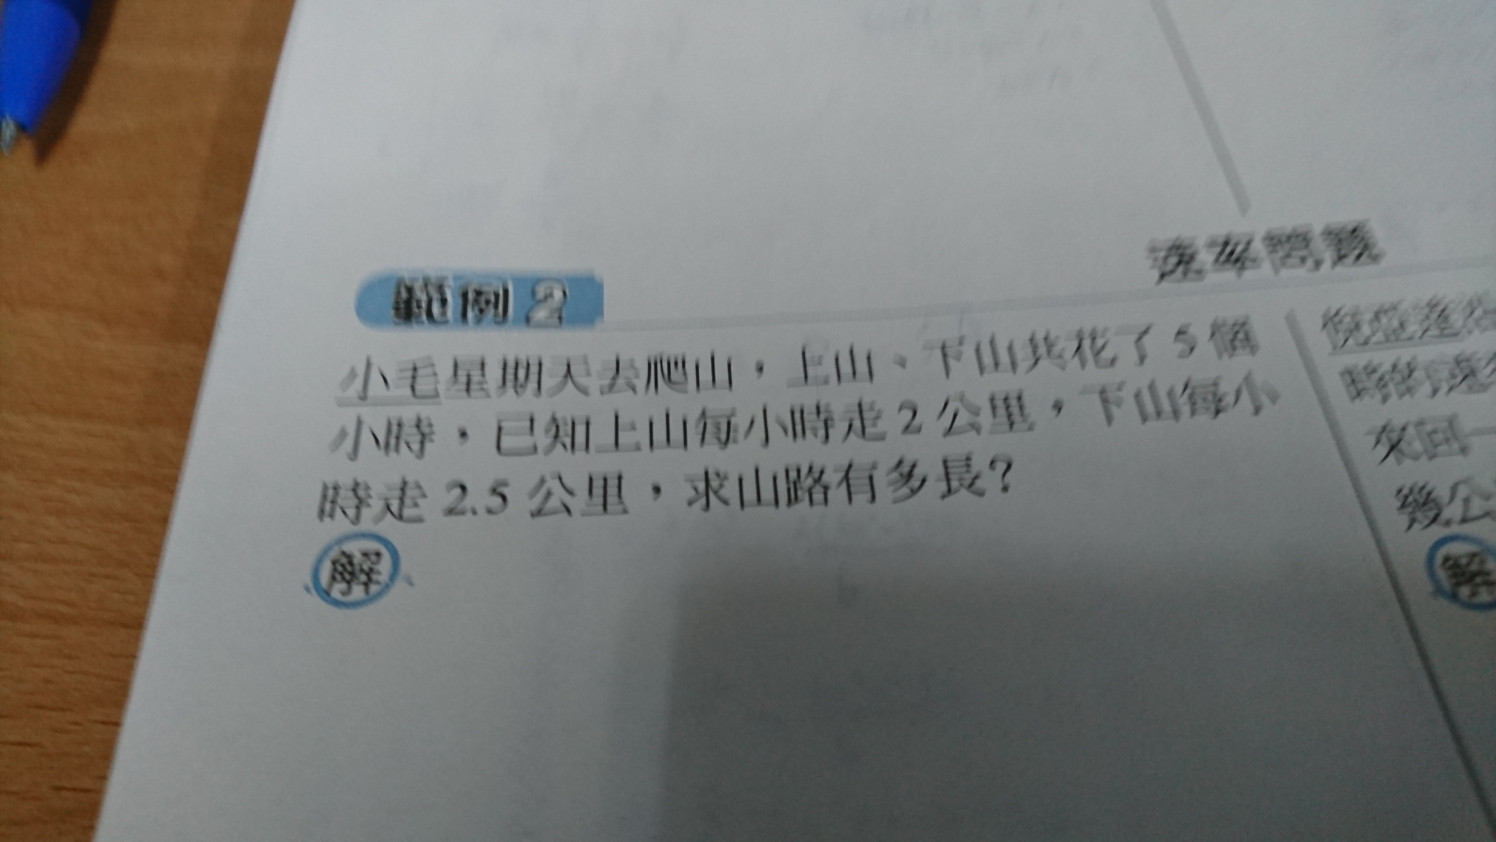 速率問題
範例 2
小毛星期天去爬山，上山、下山共花了 5 個
小時，已知上山每小時走 2 公里，下山每小
時走 2.5 公里，求山路有多長？
解
時的速
來回一
幾公
解